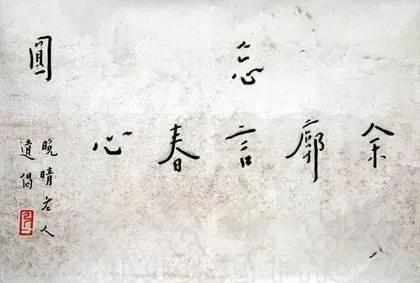 余
廓
忘言
春
心
圓
晚晴老人
遺偈